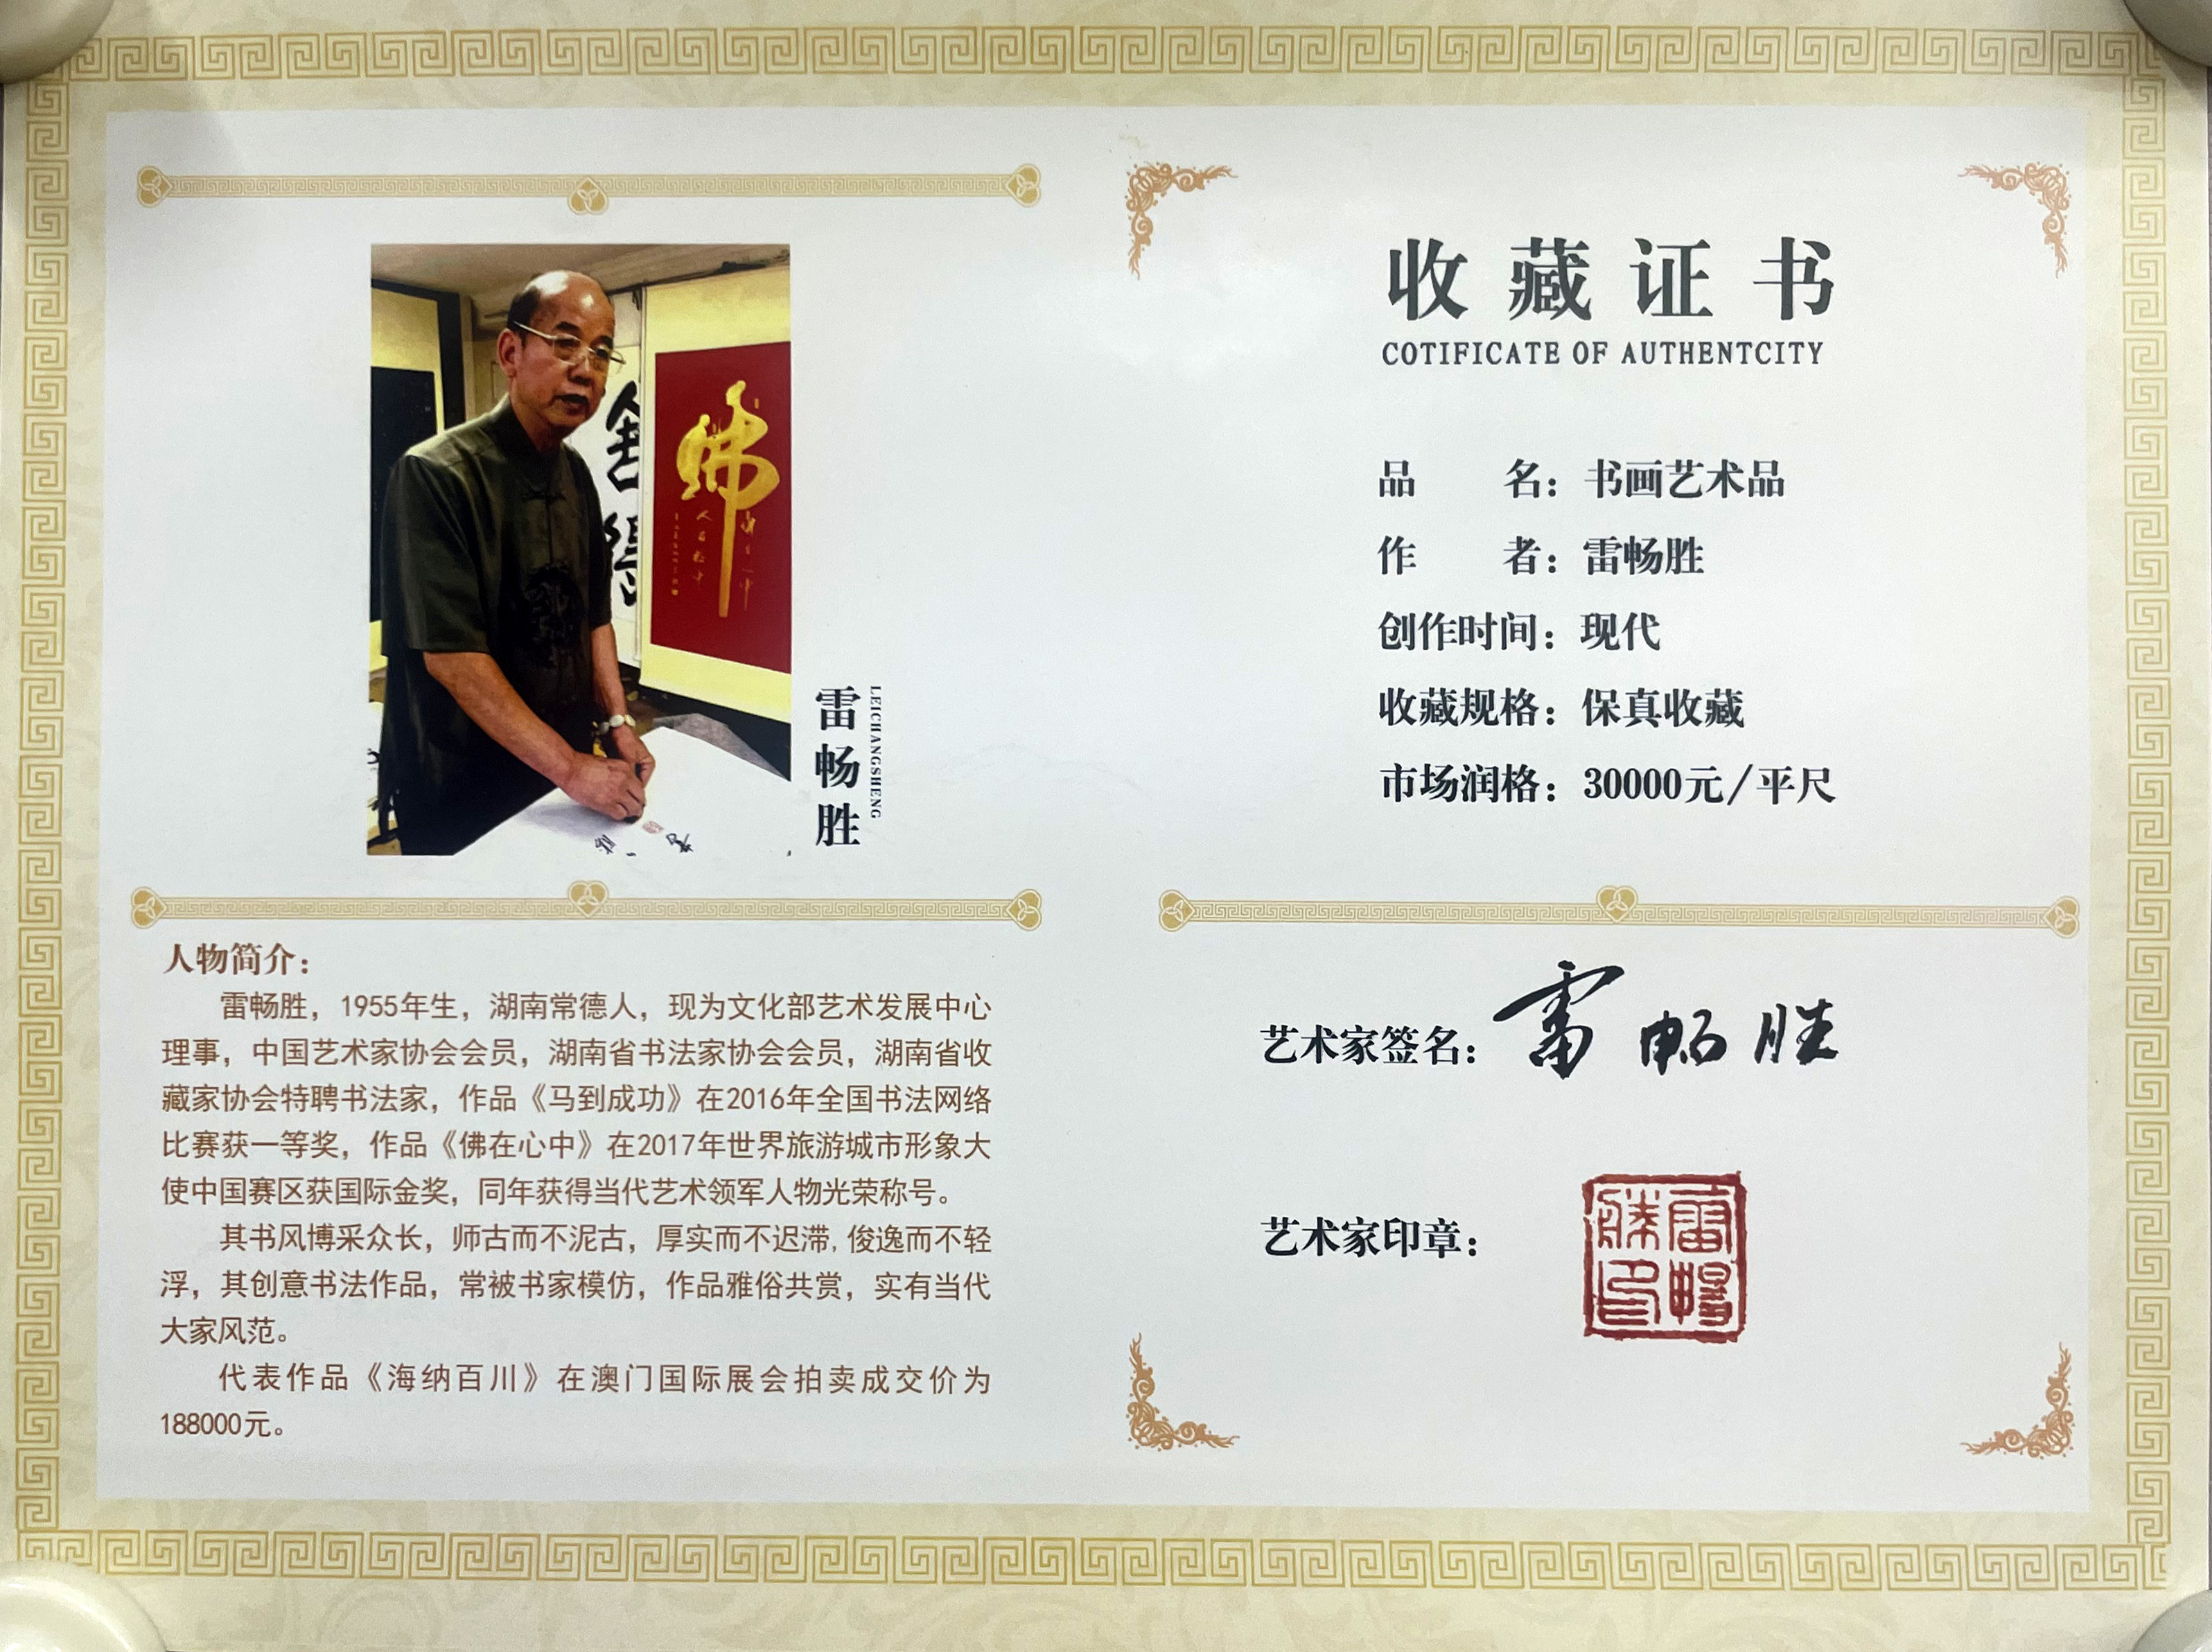 佛
舍
得
雷畅胜
LEICHANGSHENG
人物简介：
雷畅胜，1955年生，湖南常德人，现为文化部艺术发展中心
理事，中国艺术家协会会员，湖南省书法家协会会员，湖南省收
藏家协会特聘书法家，作品《马到成功》在2016年全国书法网络
比赛获一等奖，作品《佛在心中》在2017年世界旅游城市形象大
使中国赛区获国际金奖，同年获得当代艺术领军人物光荣称号。
其书风博采众长，师古而不泥古，厚实而不迟滞,俊逸而不轻
浮，其创意书法作品，常被书家模仿，作品雅俗共赏，实有当代
大家风范。
代表作品《海纳百川》在澳门国际展会拍卖成交价为
188000元。
收藏证书
COTIFICATE OF AUTHENTCITY
品名：书画艺术品
作者：雷畅胜
创作时间：现代
收藏规格：保真收藏
市场润格：30000元/平尺
艺术家签名：雷畅胜
艺术家印章：
雷暢
勝印